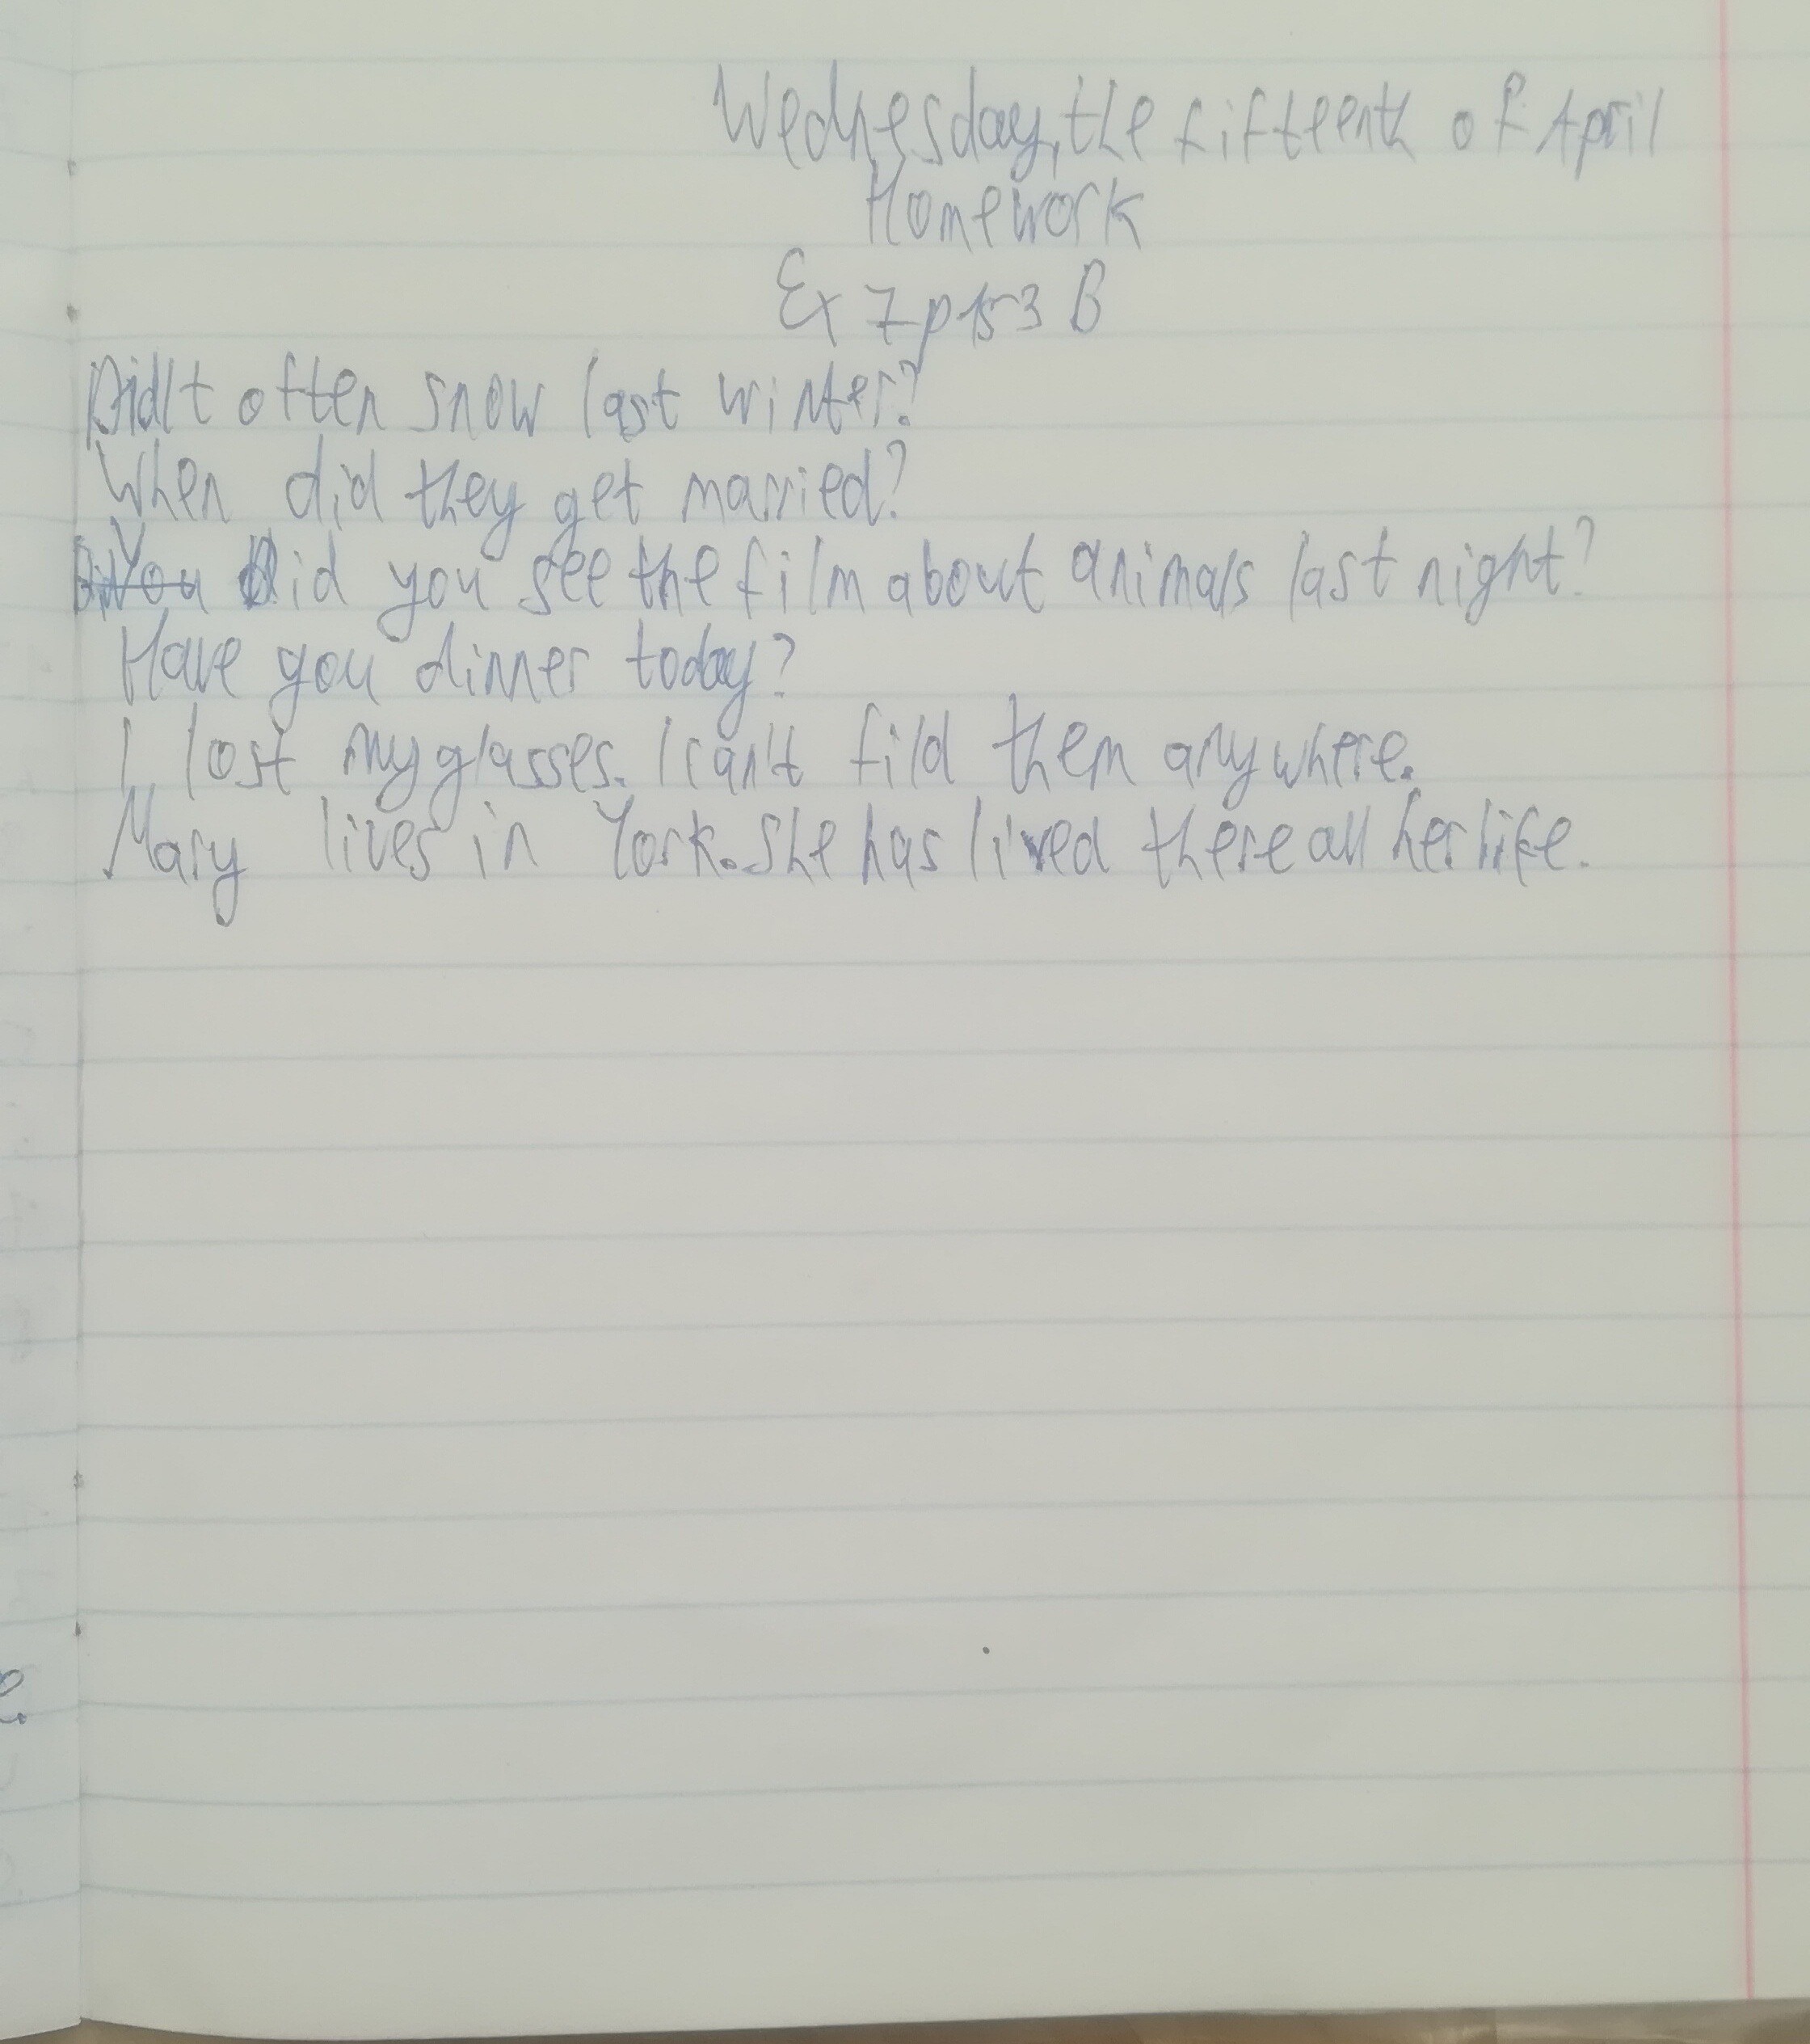 Wednesday, the fifteenth of April
Homework
Ex 7 p 153 B
Did It often snow last winter?
When did they get married?
You Did you see the film about animals last night?
Have you dinner today?
I lost my glasses. I can't fild them anywhere.
Mary lives in York. She has lived there all her life.